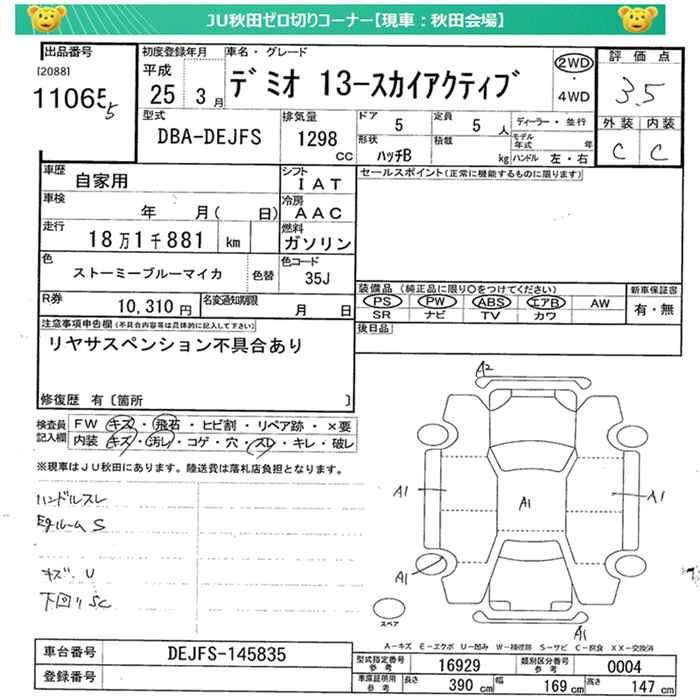 JU秋田ゼロ切りコーナー【現車：秋田会場】
出品番号
[2088]
11065 5
初度登録年月
平成
25 3月
車名・グレード
デミオ 13-スカイアクティブ
2WD
4WD
評価点
3.5
外装 内装
C C
型式
DBA-DEJFS
排気量
1298
CC
ドア
5
定員
5人
ディーラー・並行
モデル年式 年
形状
ハッチB
積載
kg
ハンドル 左・右
車歴
自家用
シフト
IAT
車検
年 月( 日)
冷房
AAC
走行
18万1千881 km
燃料
ガソリン
色
ストーミーブルーマイカ
色替
色コード
35J
R券
10,310円
名変通知期限
月 日
セールスポイント(正常に機能するものに限ります)
装備品 (純正品に限り○をつけてください)
PS PW ABS エアB AW
SR ナビ TV カワ
新車保証書
有・無
後日品
注意事項申告欄(不具合内容等は具体的に記入して下さい)
リヤサスペンション不具合あり
修復歴 有〔箇所 〕
検査員記入欄
FW キズ・飛石・ヒビ割・リペア跡・×要
内装 キズ・汚レ・コゲ・穴・スレ・キレ・破レ
※現車はJU秋田にあります。陸送費は落札店負担となります。
ハンドルスレ
Egルーム S
キズ・U
下回り SC
A2
A1
A1
A1
A1
A1
スペア
A-キズ E-エクボ U-凹み W-補修跡 S-サビ C-腐食 XX-交換済
車台番号
DEJFS-145835
登録番号
型式指定番号
参考
16929
類別区分番号
参考
0004
車庫証明用
参考
長さ 390 cm 幅 169 cm 高さ 147 cm